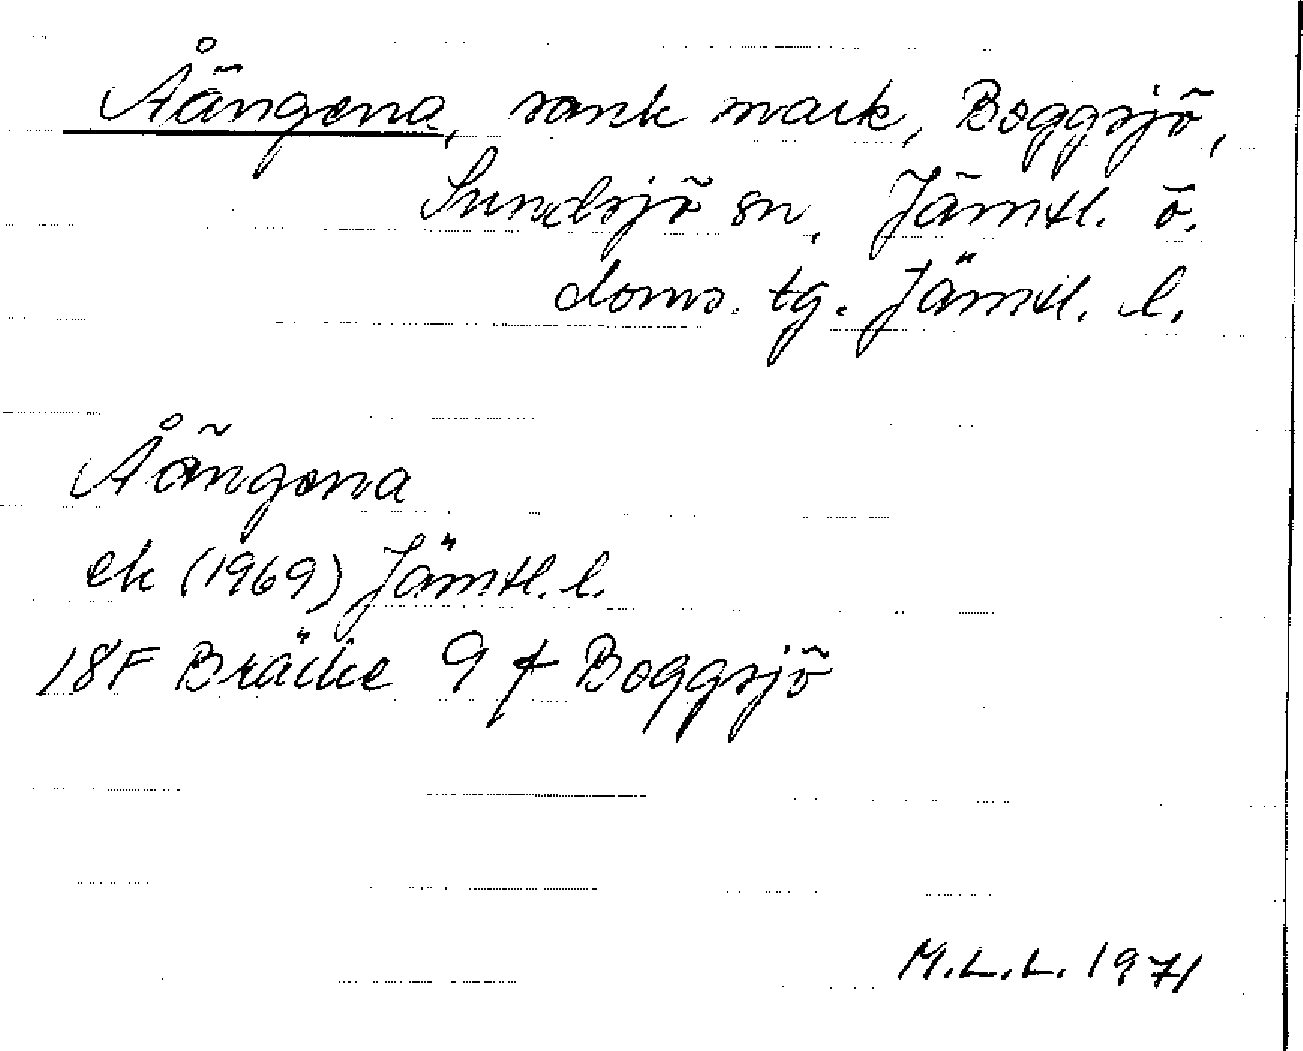 Åängena, sank mark, Boggsjö,
Sundsjö sn, Jämtl. ö.
doms. tg. Jämtl. l.
Åängena
ek (1969) Jämtl. l.
18F Bräcke 9 f Boggsjö
M.L.L. 1971